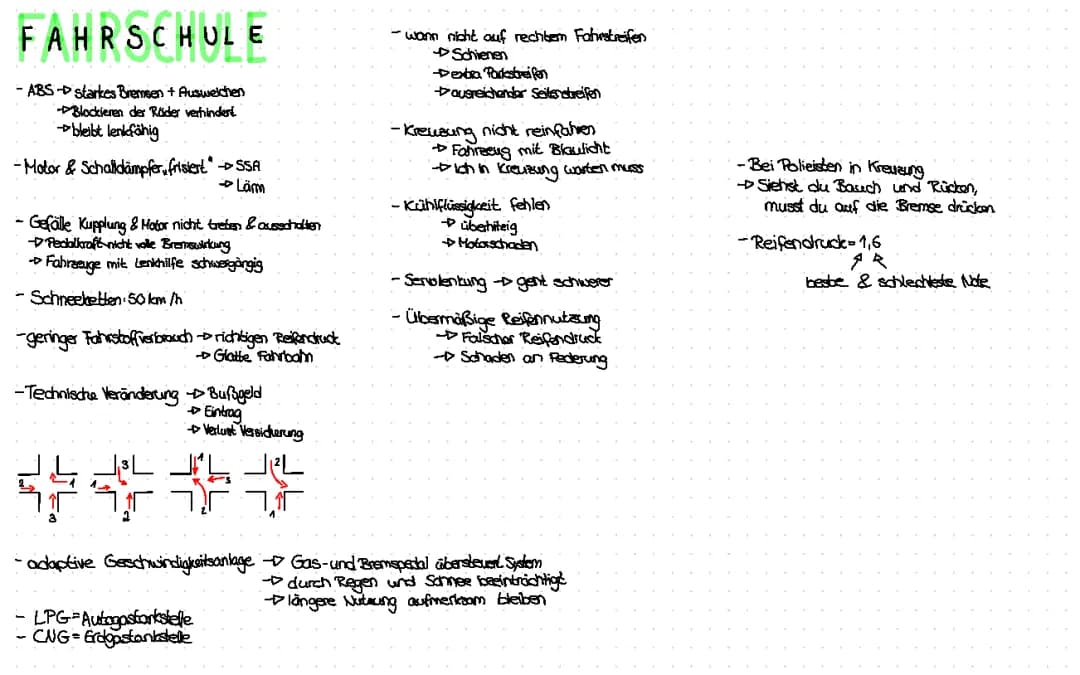 FAHRSCHULE
- ABS → starkes Bremsen + Ausweichen
→ Blockieren der Räder verhindert
→ bleibt lenkfähig
- Motor & Schalldämpfer „frisiert" → SSA
→ Lärm
- Gefälle Kupplung & Motor nicht treten & ausschalten
→ Pedalkraft nicht volle Bremswirkung
→ Fahrzeuge mit Lenkhilfe schwergängig
- Schneeketten: 50 km/h
- geringer Fahrstoffverbrauch → richtigen Reifendruck
→ Glatte Fahrbahn
- Technische Veränderung → Bußgeld
→ Eintrag
→ Verlust Versicherung
2 1 3
1 3 2
1 3 2
2 1
- adaptive Geschwindigkeitsanlage → Gas- und Bremspedal übersteuert System
→ durch Regen und Schnee beeinträchtigt
→ längere Nutzung aufmerksam bleiben
- LPG = Autogastankstelle
- CNG = Erdgastankstelle
- wann nicht auf rechtem Fahrstreifen
→ Schienen
→ extra Parkstreifen
→ ausreichender Seitenstreifen
- Kreuzung nicht reinfahren
→ Fahrzeug mit Blaulicht
→ Ich in Kreuzung warten muss
- Kühlflüssigkeit fehlen
→ überhitzig
→ Motorschaden
- Servolenkung → geht schwerer
- Übermäßige Reifennutzung
→ Falscher Reifendruck
→ Schaden an Federung
- Bei Polizisten in Kreuzung
→ Siehst du Bauch und Rücken,
musst du auf die Bremse drücken
- Reifendruck = 1,6
beste & schlechteste Note